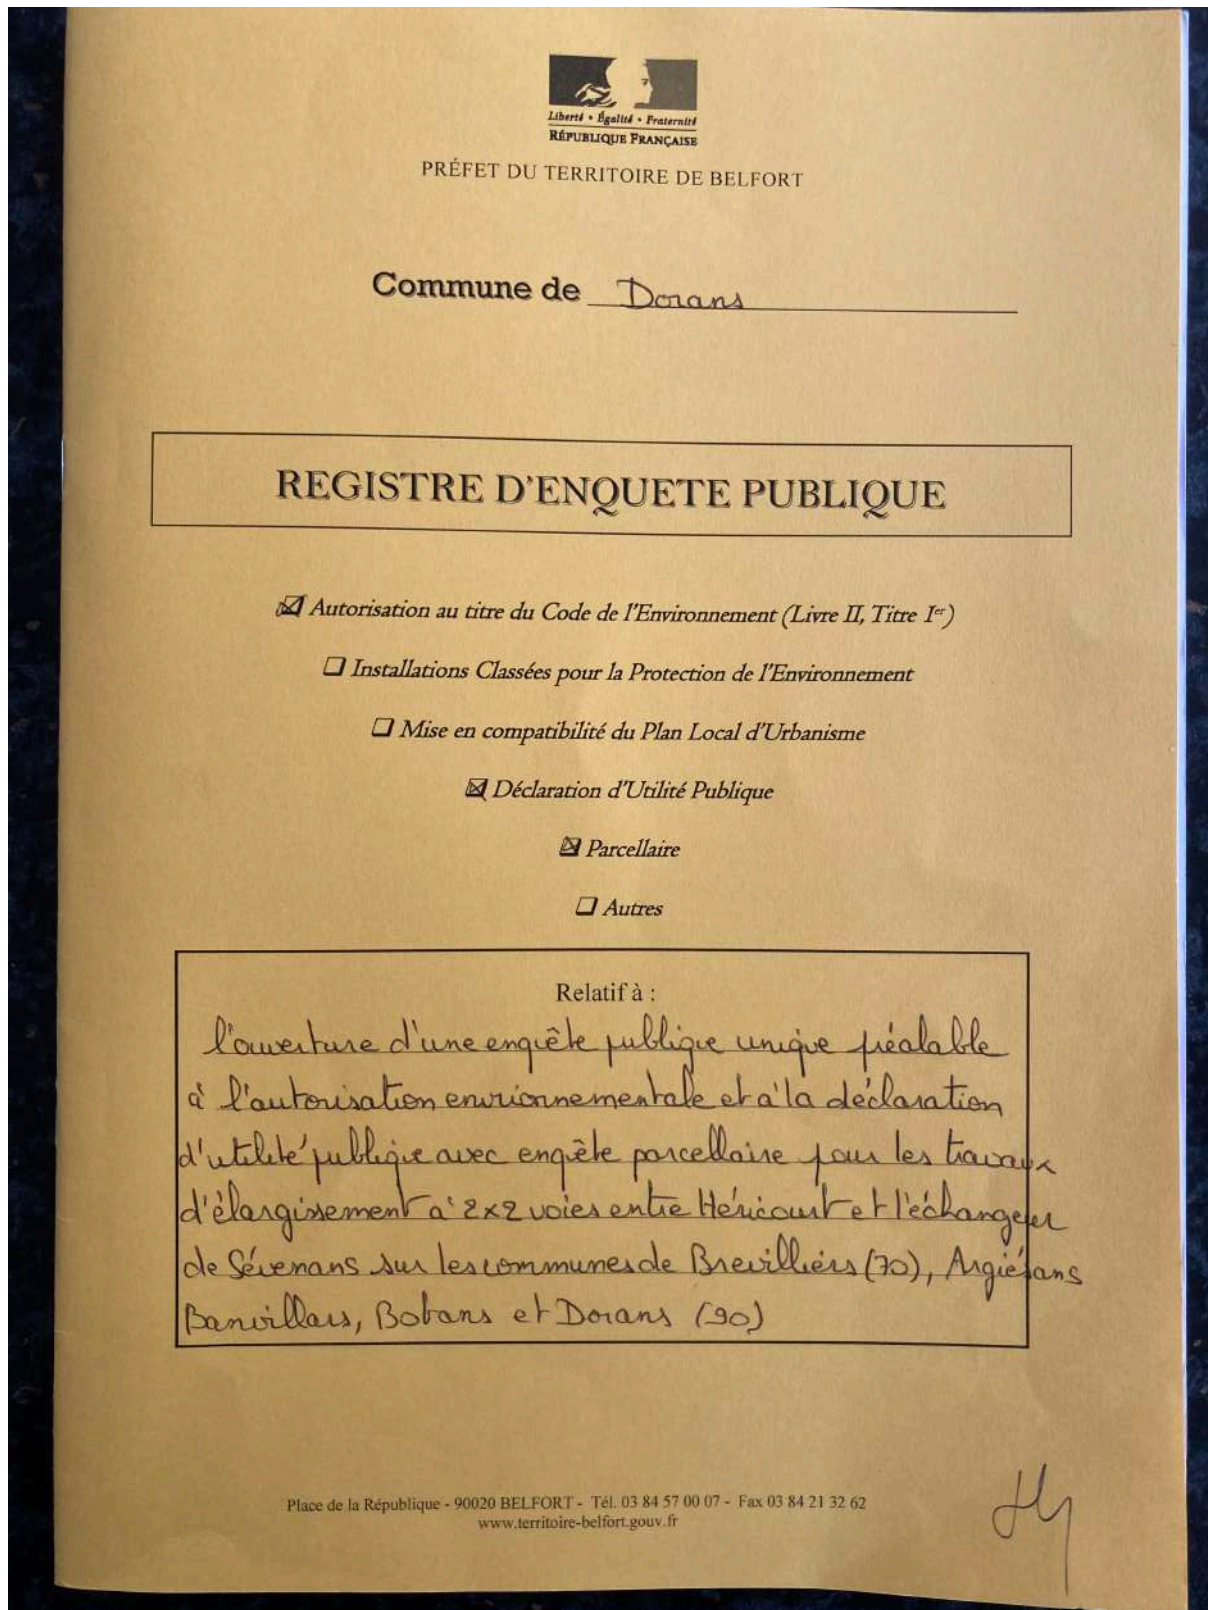 Liberté • Égalité • Fraternité
RÉPUBLIQUE FRANÇAISE
PRÉFET DU TERRITOIRE DE BELFORT
Commune de Dorans
REGISTRE D'ENQUETE PUBLIQUE
☒ Autorisation au titre du Code de l'Environnement (Livre II, Titre Ier)
☐ Installations Classées pour la Protection de l'Environnement
☐ Mise en compatibilité du Plan Local d'Urbanisme
☒ Déclaration d'Utilité Publique
☒ Parcellaire
☐ Autres
Relatif à :
l'ouverture d'une enquête publique unique préalable
à l'autorisation environnementale et à la déclaration
d'utilité publique avec enquête parcellaire pour les travaux
d'élargissement à 2x2 voies entre Héricourt et l'échangeur
de Sévenans sur les communes de Brevilliers (70), Argiésans
Banvillars, Botans et Dorans (90)
Place de la République - 90020 BELFORT - Tél. 03 84 57 00 07 - Fax 03 84 21 32 62
www.territoire-belfort.gouv.fr